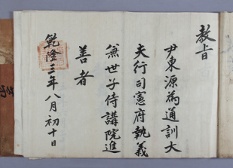 敎旨
尹東源爲通訓大
夫行司憲府執義
兼世子侍講院進
善者
乾隆三年八月初十日